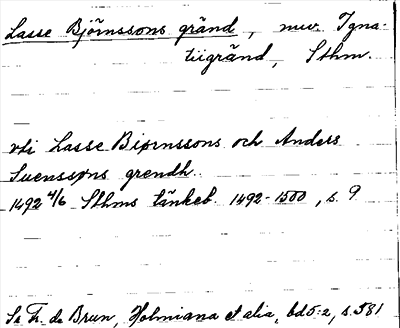 Lasse Björnssons gränd, nuv. Igna-
tiigränd, Sthm.
vti Lasse Biørnssons och Anders
Suenssøns grendh.
1492 4/6 Sthms tänkeb. 1492-1500, s. 9
Fr. de Brun, Holmiana et alia, bd 5:2, s. 581